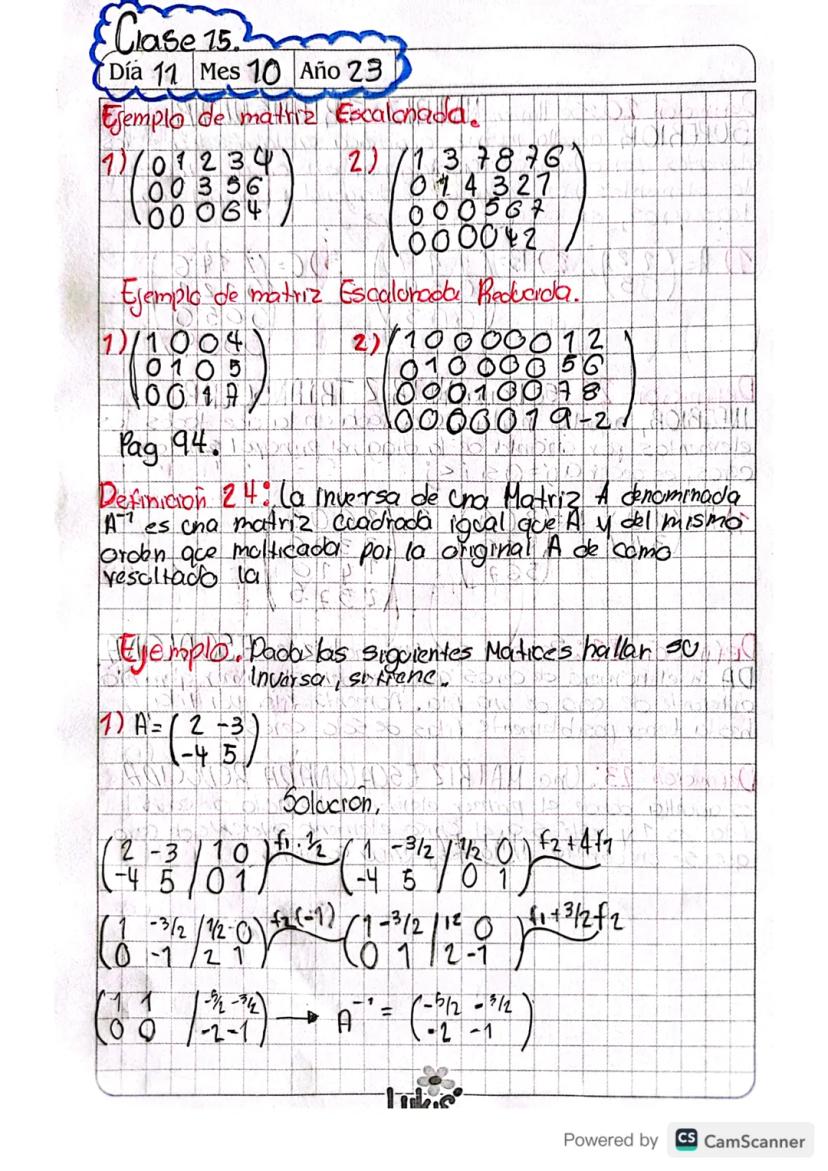 Clase 15.
Día 11 Mes 10 Año 23
Ejemplo de matriz Escalonada.
1) 0 1 2 3 4 2) 1 3 7 8 7 6
0 0 3 5 6 0 1 4 3 2 1
0 0 0 6 4 0 0 0 5 6 7
0 0 0 0 4 2
Ejemplo de matriz Escalonada Reducida.
1) 1 0 0 4 2) 1 0 0 0 0 0 1 2
0 1 0 5 0 1 0 0 0 0 5 6
0 0 1 7 0 0 0 1 0 0 7 8
0 0 0 0 0 1 9 -2
Pag 94.
Definicion 24: la inversa de una Matriz A denominada
A⁻¹ es una matriz cuadrada igual que A y del mismo
orden que multicada por la original A de como
resultado la
Ejemplo. las siguientes Matices hallar su
inversa, si tiene.
1) A = ( 2 -3
-4 5 )
Solución,
( 2 -3 / 1 0 ) f1 · 1/2 ( 1 -3/2 / 1/2 0 ) f2+4f1
-4 5 / 0 1 -4 5 / 0 1
( 1 -3/2 / 1/2 0 ) f2(-1) ( 1 -3/2 | 12 0 ) f1+3/2f2
0 -1 / 2 1 0 1 / 2 -1
( 1 1 / -5/2 -3/2 ) → A⁻¹ = ( -5/2 -3/2 )
0 0 -2 -1 -2 -1
Lukis
Powered by CS CamScanner